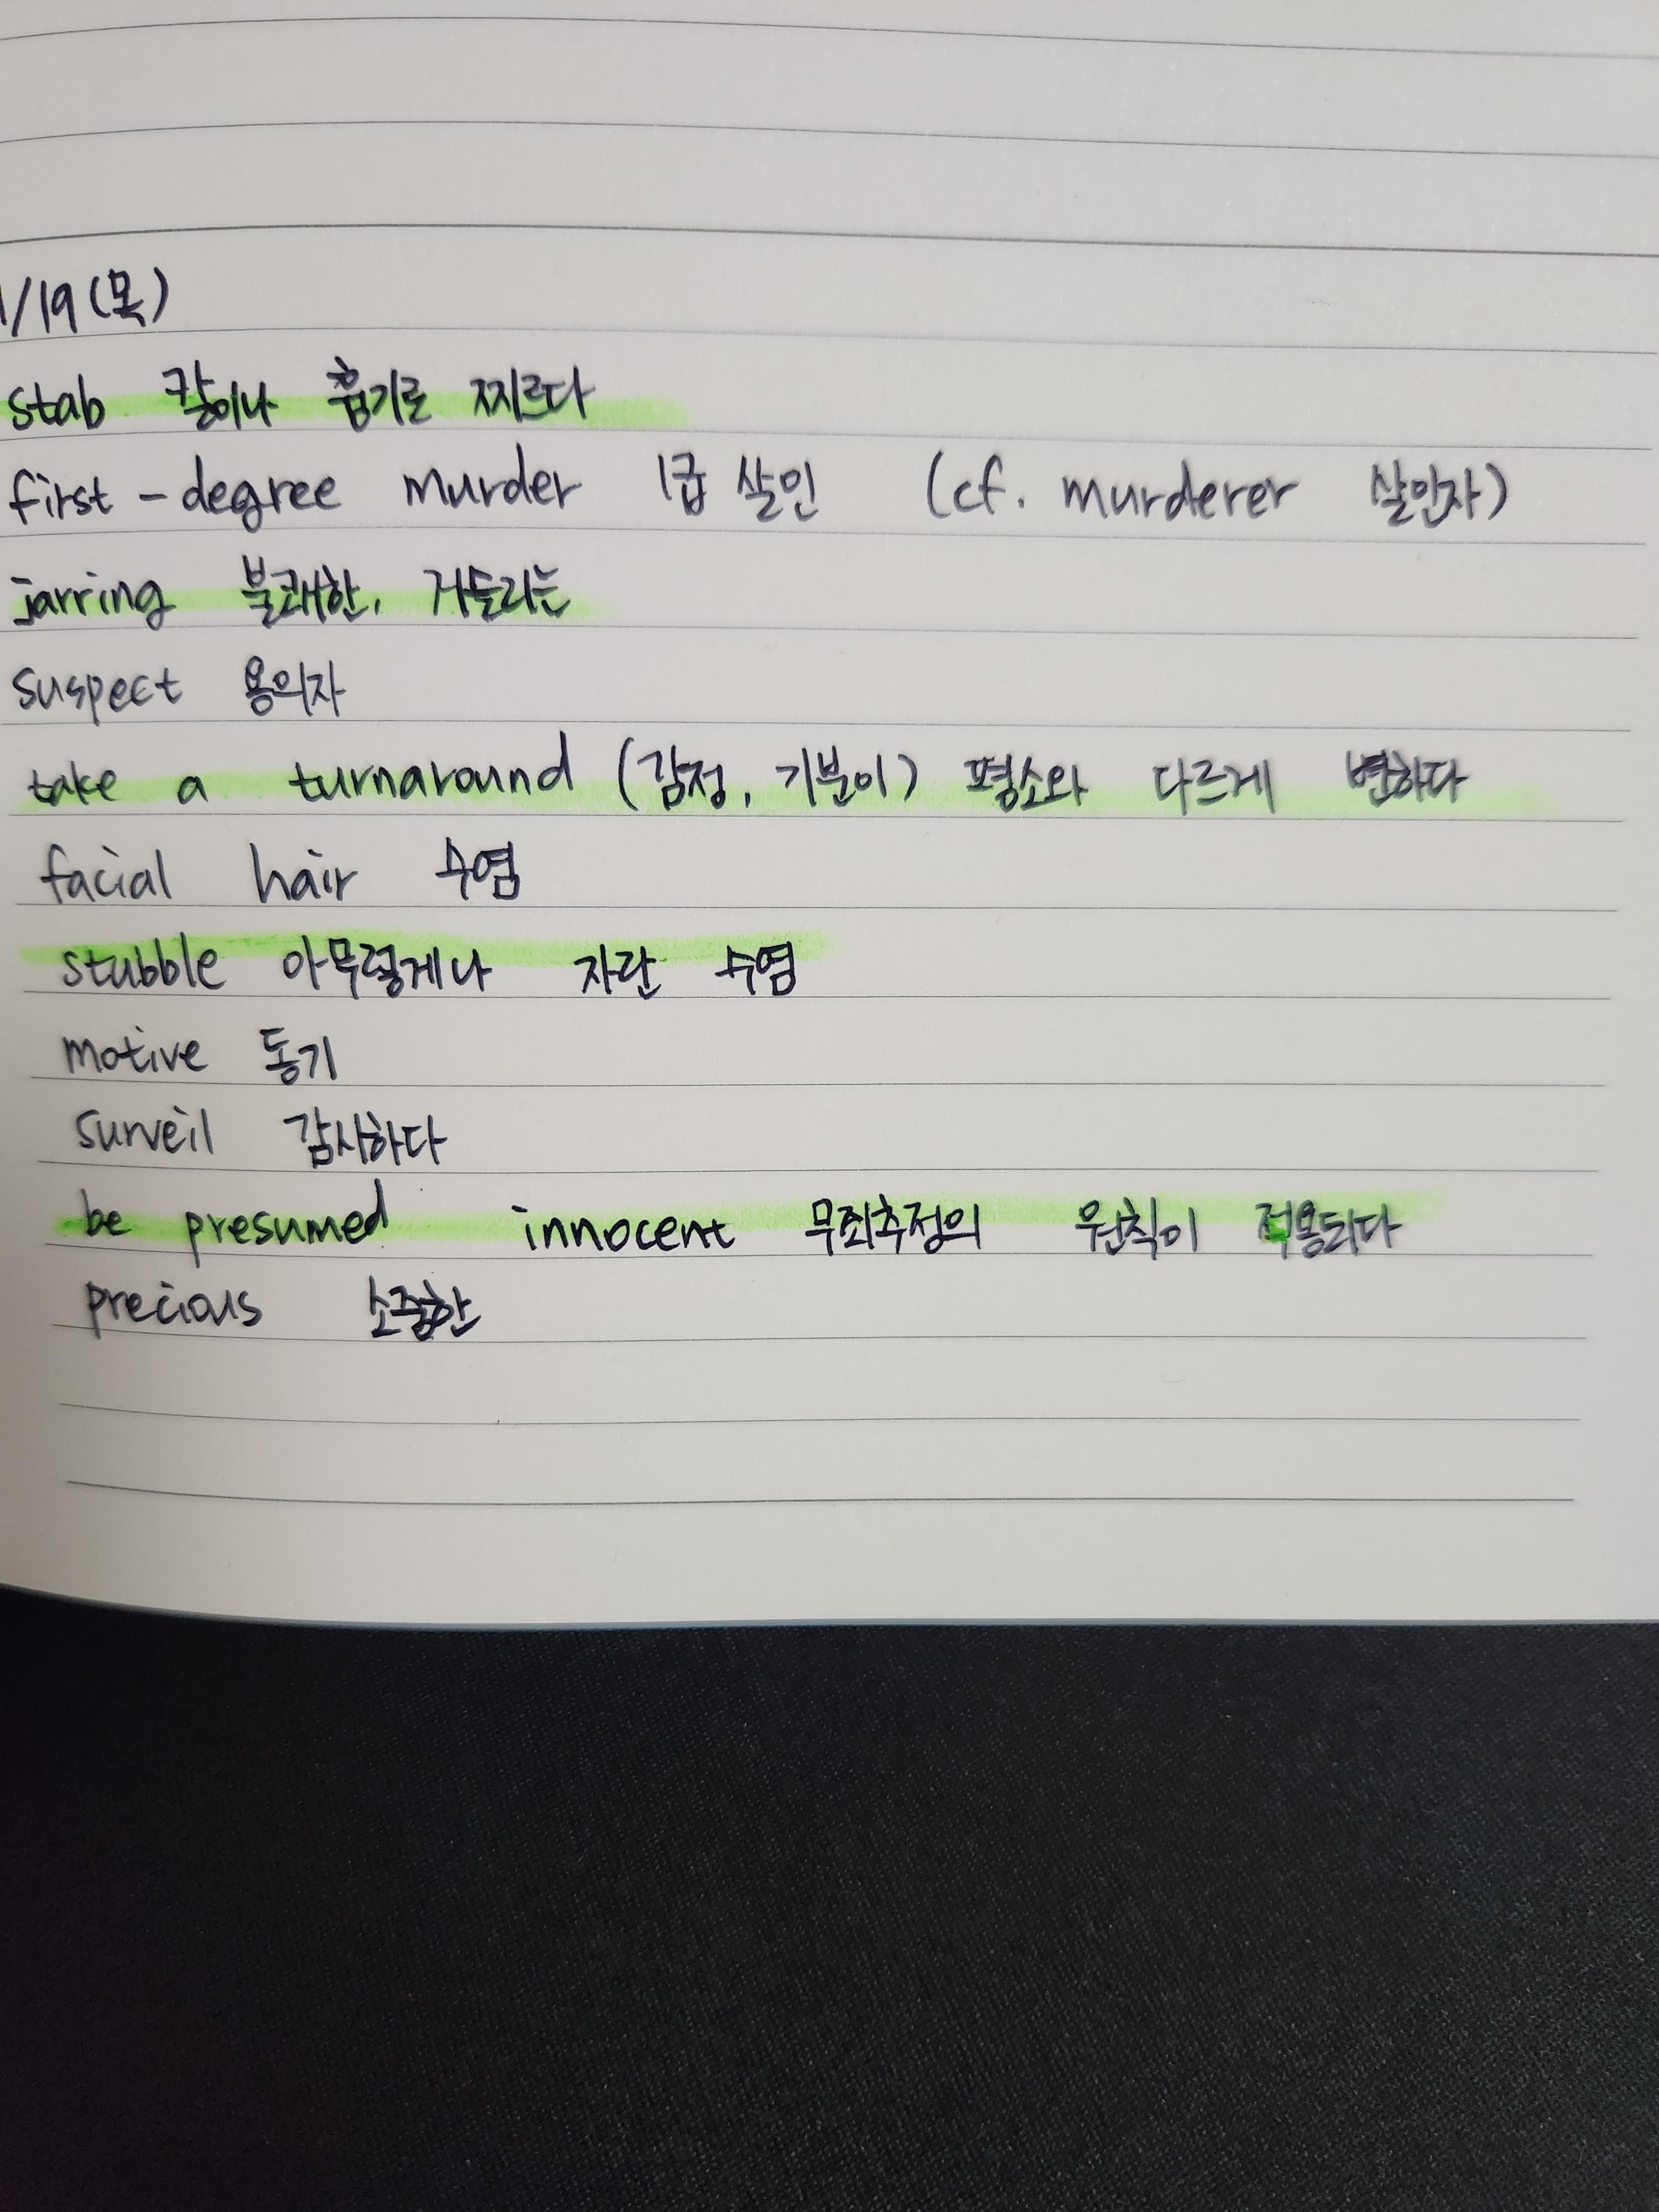 1/19(목)
stab 칼이나 흉기로 찌르다
first-degree murder 1급 살인 (cf. murderer 살인자)
jarring 불쾌한, 거슬리는
suspect 용의자
take a turnaround (감정, 기분이) 평소와 다르게 변하다
facial hair 수염
stubble 아무렇게나 자란 수염
motive 동기
surveil 감시하다
be presumed innocent 무죄추정의 원칙이 적용되다
precious 소중한